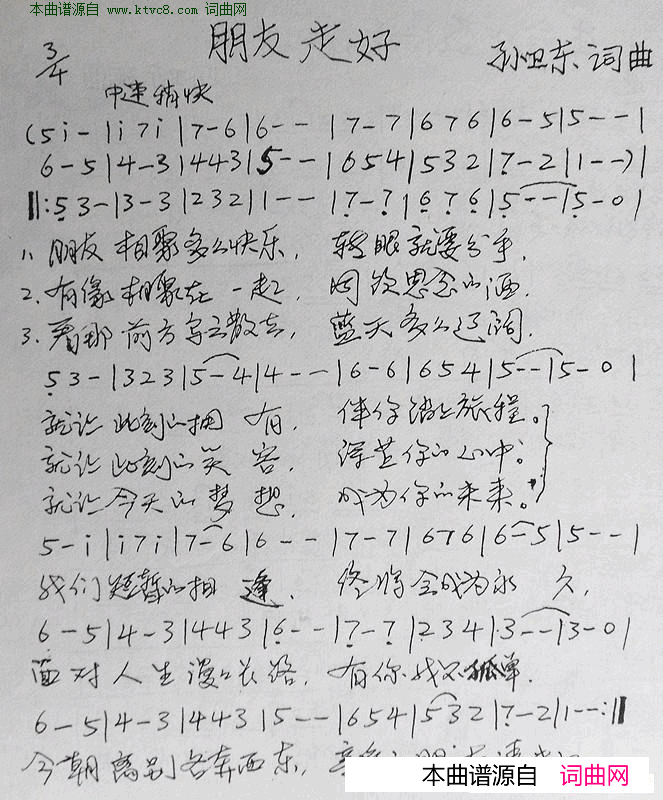 本曲谱源自 www.ktvc8.com 词曲网
3/4 朋友走好 孙卫东 词曲
中速稍快
(5 i - | i 7 i | 7 - 6 | 6 - - | 7 - 7 | 6 7 6 | 6 - 5 | 5 - - |
6 - 5 | 4 - 3 | 4 4 3 | 5 - - | 6 5 4 | 5 3 2 | 7 - 2 | 1 - -) |
‖: 5 3 - | 3 - 3 | 2 3 2 | 1 - - | 7 - 7 | 6 7 6 | 5 - - | 5 - 0 |
1. 朋友相聚多么快乐, 转眼就要分手.
2. 有缘相聚在一起, 同饮思念的酒.
3. 看那前方乌云散去, 蓝天多么辽阔.
5 3 - | 3 2 3 | 5 - 4 | 4 - - | 6 - 6 | 6 5 4 | 5 - - | 5 - 0 |
就让此刻的拥有, 伴你踏上旅程。
就让此刻的笑容, 深荳你的心中。
就让今天的梦想, 成为你的未来。
5 - i | i 7 i | 7 - 6 | 6 - - | 7 - 7 | 6 7 6 | 6 - 5 | 5 - - |
我们短暂的相逢, 终将会成为永久,
6 - 5 | 4 - 3 | 4 4 3 | 6 - - | 7 - 7 | 2 3 4 | 3 - - | 3 - 0 |
面对人生漫长路, 有你我不孤单.
6 - 5 | 4 - 3 | 4 4 3 | 5 - - | 6 5 4 | 5 3 2 | 7 - 2 | 1 - - :‖
今朝离别各奔西东,
本曲谱源自 词曲网